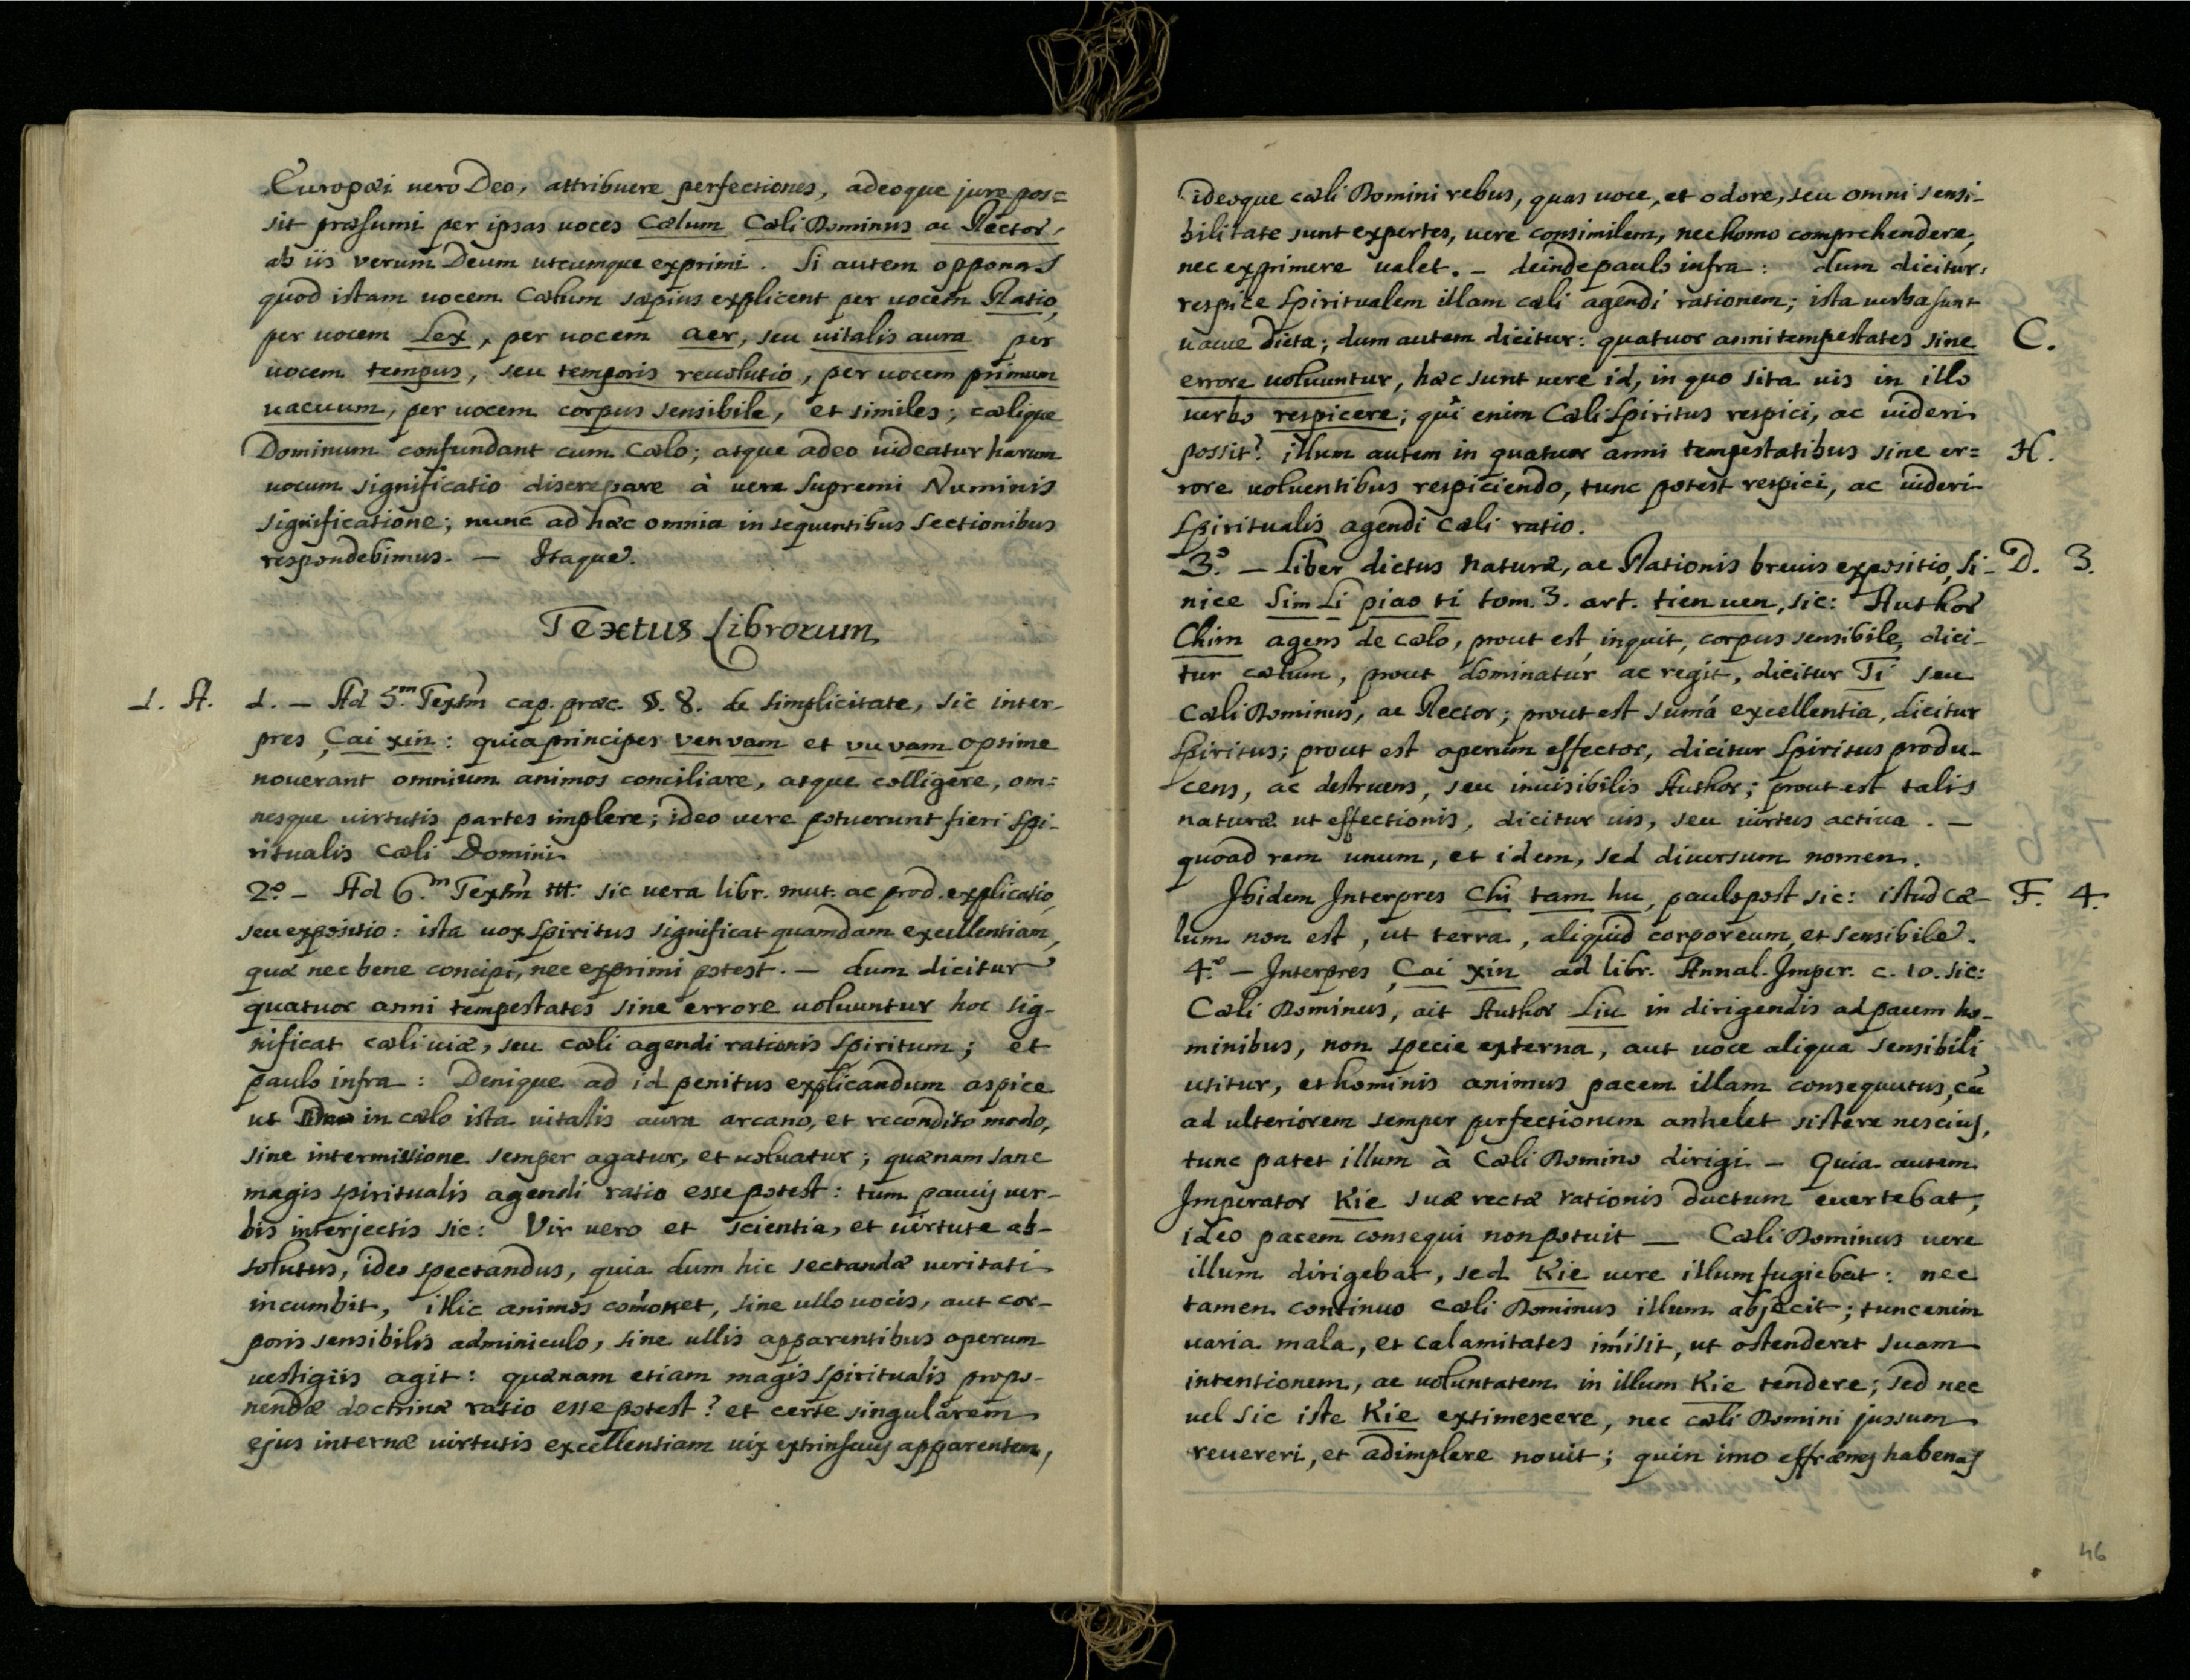 Europæi uero Deo, attribuere perfectiones, adeoque jure pos=
sit præsumi per ipsas uoces Cælum Cæli Dominus ac Rector,
ab iis verum Deum utcumque exprimi. Si autem opponas
quod istam uocem Cælum sæpius explicent per uocem Ratio,
per uocem Lex, per uocem aer, seu uitalis aura per
uocem tempus, seu temporis reuolutio, per uocem primum
uacuum, per uocem corpus sensibile, et similes; cælique
Dominum confundant cum Cælo; atque adeo uideatur harum
uocum significatio discrepare à uera Supremi Numinis
significatione; nunc ad hæc omnia in sequentibus Sectionibus
respondebimus. — Itaque.
Textus Librorum
1. A. 1. — Ad 5.m Textm̃ cap. præc. §. 8. de simplicitate, sic inter-
pres Cai xin: quia principes ven vam et vu vam optime
nouerant omnium animos conciliare, atque colligere, om=
nesque uirtutis partes implere; ideo uere potuerunt fieri Spi-
ritualis Cæli Domini
2.o — Ad 6.m Textm̃ sic uera libr. mut. ac prod. explicatio,
seu expositio: ista uox Spiritus significat quamdam excellentiam,
quæ nec bene concipi, nec exprimi potest. — dum dicitur
quatuor anni tempestates sine errore uoluuntur hoc sig-
nificat cæli uiæ, seu cæli agendi rationis Spiritum; et
paulo infra: Denique ad id penitus explicandum aspice
ut in cælo ista uitalis aura arcano, et recondito modo,
sine intermissione semper agatur, et uoluatur; quænam sane
magis spiritualis agendi ratio esse potest: tum paucis uer-
bis interjectis sic: Vir uero et scientia, et uirtute ab-
solutus, ideo spectandus, quia dum hic sectandæ ueritati
incumbit, illic animos com̃onet, sine ullo uocis, aut cor-
poris sensibilis adminiculo, sine ullis apparentibus operum
uestigiis agit: quænam etiam magis spiritualis propo-
nendæ doctrinæ ratio esse potest? et certe singularem
ejus internæ uirtutis excellentiam uix extrinsecus apparentem,
ideoque cæli Domini rebus, quas uoce, et odore, seu omni sensi-
bilitate sunt expertes, uere consimilem, nec homo comprehendere,
nec exprimere ualet. — deinde paulo infra: dum dicitur,
respice Spiritualem illam cæli agendi rationem; ista uerba sunt
uacue dicta; dum autem dicitur: quatuor anni tempestates sine C.
errore uoluuntur, hæc sunt uere id, in quo sita uis in illo
uerbo respicere; quî enim Cæli Spiritus respici, ac uideri
possit? illum autem in quatuor anni tempestatibus sine er= H.
rore uoluentibus respiciendo, tunc potest respici, ac uideri
Spiritualis agendi Cæli ratio.
3.o — Liber dictus naturæ, ac Rationis breuis expositio, Si- D. 3.
nice Sim Li piao ti tom. 3. art. tien uen, sic: Author
Chim agens de cælo, prout est, inquit, corpus sensibile, dici-
tur cælum, prout dominatur ac regit, dicitur Ti seu
Cæli Dominus, ac Rector; prout est sum̃a excellentia, dicitur
Spiritus; prout est operum effector, dicitur Spiritus produ-
cens, ac destruens, seu inuisibilis Author; prout est talis
naturæ ut effectionis, dicitur uis, seu uirtus actiua. —
quoad rem unum, et idem, sed diuersum nomen.
Ibidem Interpres Chi tam hu, paulo post sic: istud Cæ- F. 4.
lum non est, ut terra, aliquid corporeum, et sensibile.
4.o — Interpres Cai xin ad libr. Annal. Imper. c. 10. sic:
Cæli Dominus, ait Author Liu in dirigendis ad pacem ho-
minibus, non specie externa, aut uoce aliqua sensibili
utitur, et hominis animus pacem illam consequutus, cũ
ad ulteriorem semper perfectionem anhelet sistere nescius,
tunc patet illum à Cæli Domino dirigi — Quia autem
Imperator Kie suæ rectæ rationis ductum euertebat,
ideo pacem consequi non potuit — Cæli Dominus uere
illum dirigebat, sed Kie uere illum fugiebat: nec
tamen continuo Cæli Dominus illum abjecit; tunc enim
uaria mala, et calamitates im̃isit, ut ostenderet suam
intentionem, ac uoluntatem in illum Kie tendere; sed nec
uel sic iste Kie extimescere, nec cæli Domini jussum
reuereri, et adimplere nouit; quin imo effrænes habenas
46